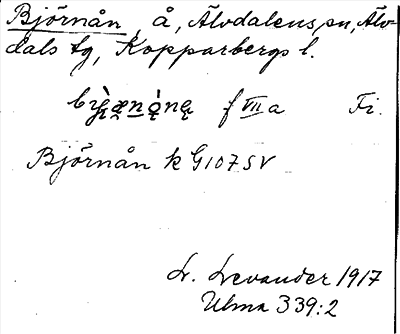 Björnån, å, Älvdalens sn, Älv-
dals tg, Kopparbergs l.
f VII a Fi.
Björnån k G107SV
L. Levander 1917
Ulma 339:2